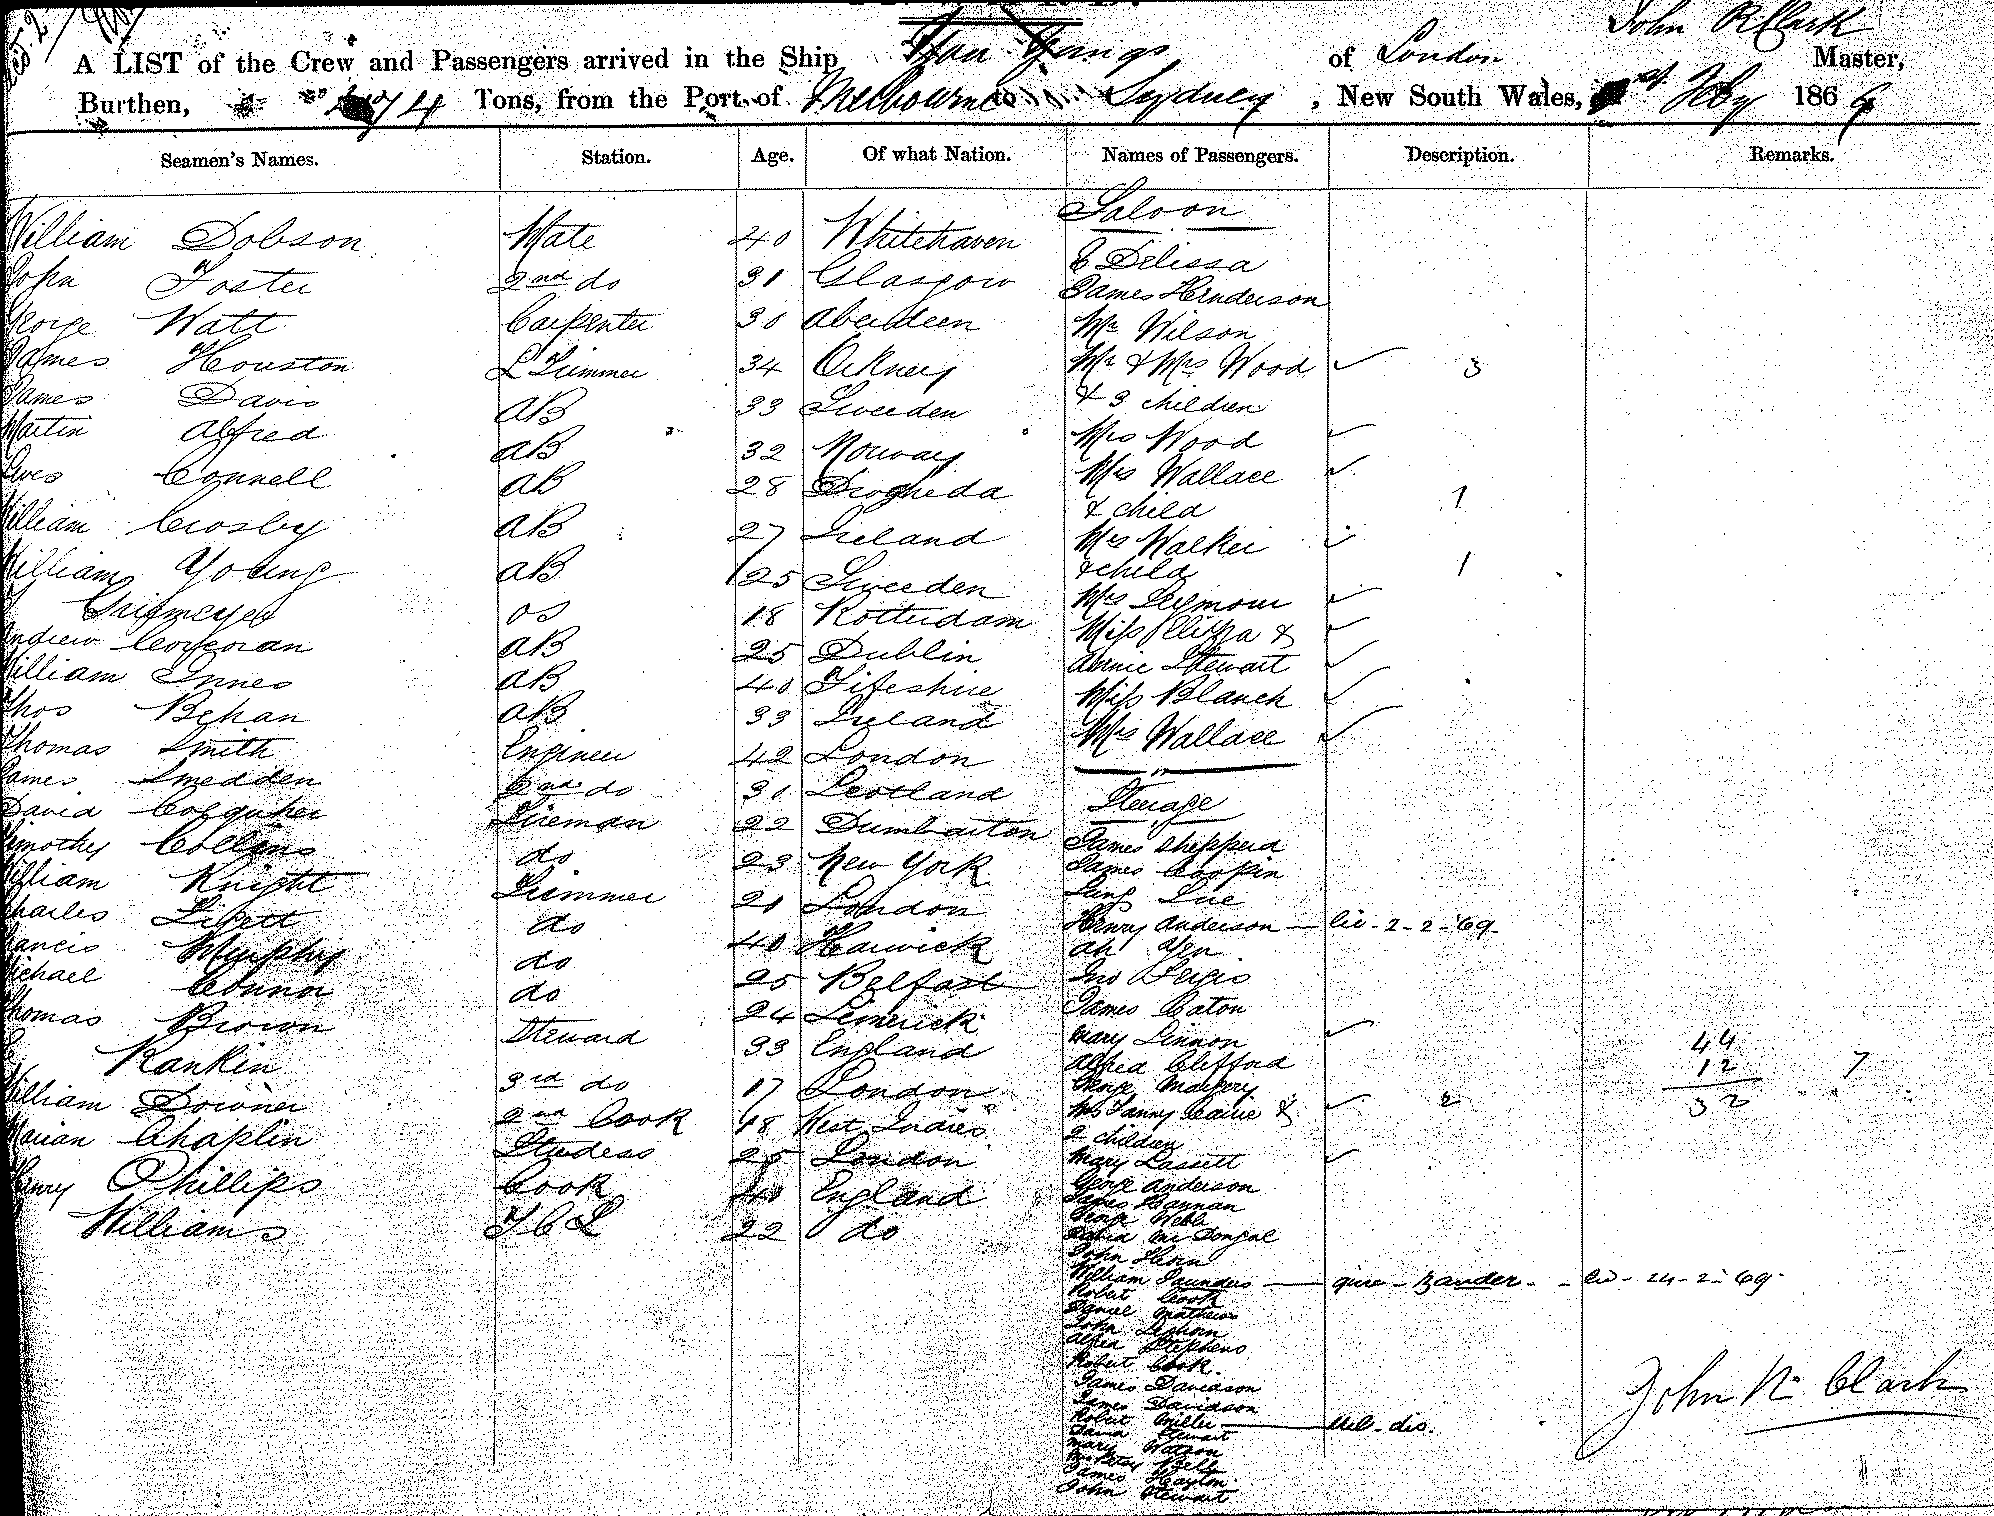 John R Clark
A LIST of the Crew and Passengers arrived in the Ship of London Master,
Burthen, Tons, from the Port of Melbourne to Sydney, New South Wales, Feby 186
Seamen's Names. Station. Age. Of what Nation. Names of Passengers. Description. Remarks.
Saloon
William Dobson Mate 40 Whitehaven
E Delissa
John Foster 2nd do 31 Glasgow
James Henderson
George Watt Carpenter 30 Aberdeen
Mr Wilson
James Houston L Trimmer 34 Orkney
Mr & Mrs Wood 3
& 3 children
James Davis AB 33 Sweeden
Mrs Wood
Martin Alfred AB 32 Norway
Mrs Wallace
Connell AB 28 Drogheda
& child 1
William Crosby AB 27 Ireland
Mrs Walker
& child 1
William Young AB 25 Sweeden
Mrs Seymour
OS 18 Rotterdam
Miss Eliza &
Andrew Corcoran AB 25 Dublin
Annie Stewart
William Innes AB 40 Fifeshire
Miss Blanch
Thos Behan AB 33 Ireland
Mrs Wallace
Thomas Smith Engineer 42 London
James Smedden 2nd do 31 Scotland
Steerage
David Colquher Fireman 22 Dumbarton
James Shepperd
Timothy Collins do 23 New York
James
William Knight Trimmer 21 London
Lung Lue
Henry Anderson — lic - 2 - 2 - '69 -
Charles do 40 Harwick
Ah Yen
Francis Murphy do 25 Belfast
Jno
Michael Connor do 24 Limerick
James Caton
Thomas Brown Steward 33 England
Mary Linnon 44
Alfred Clifford 12 7
Rankin 3rd do 17 London
George 32
William Downer 2nd Cook 48 West Indies
Mrs Fanny & 2
2 children
Marian Chaplin Studess 25 London
Mary Lassett
Henry Phillips Cook 40 England
George Anderson
James Hannan
Williams 22 do
George Webb
McDongal
John Horn
William Saunders — - - - 24 - 2 - '69 -
Robert Cook
Daniel Mathews
John
Alfred Stephens
Robert Cook
James Davidson
James Davidson
Robert Miller — dis.
David Stewart
Mary Watson
Bell
James
John Stewart
John R Clark